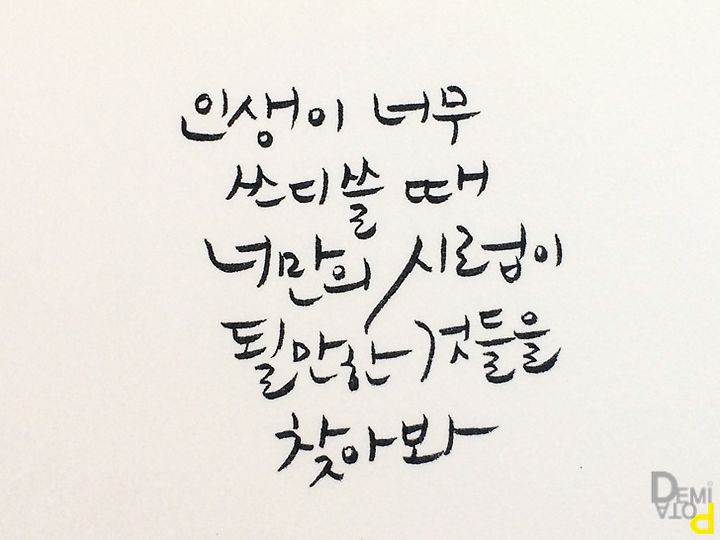 인생이 너무
쓰디쓸 때
너만의 시럽이
될만한 것들을
찾아봐
DEMI
POTA